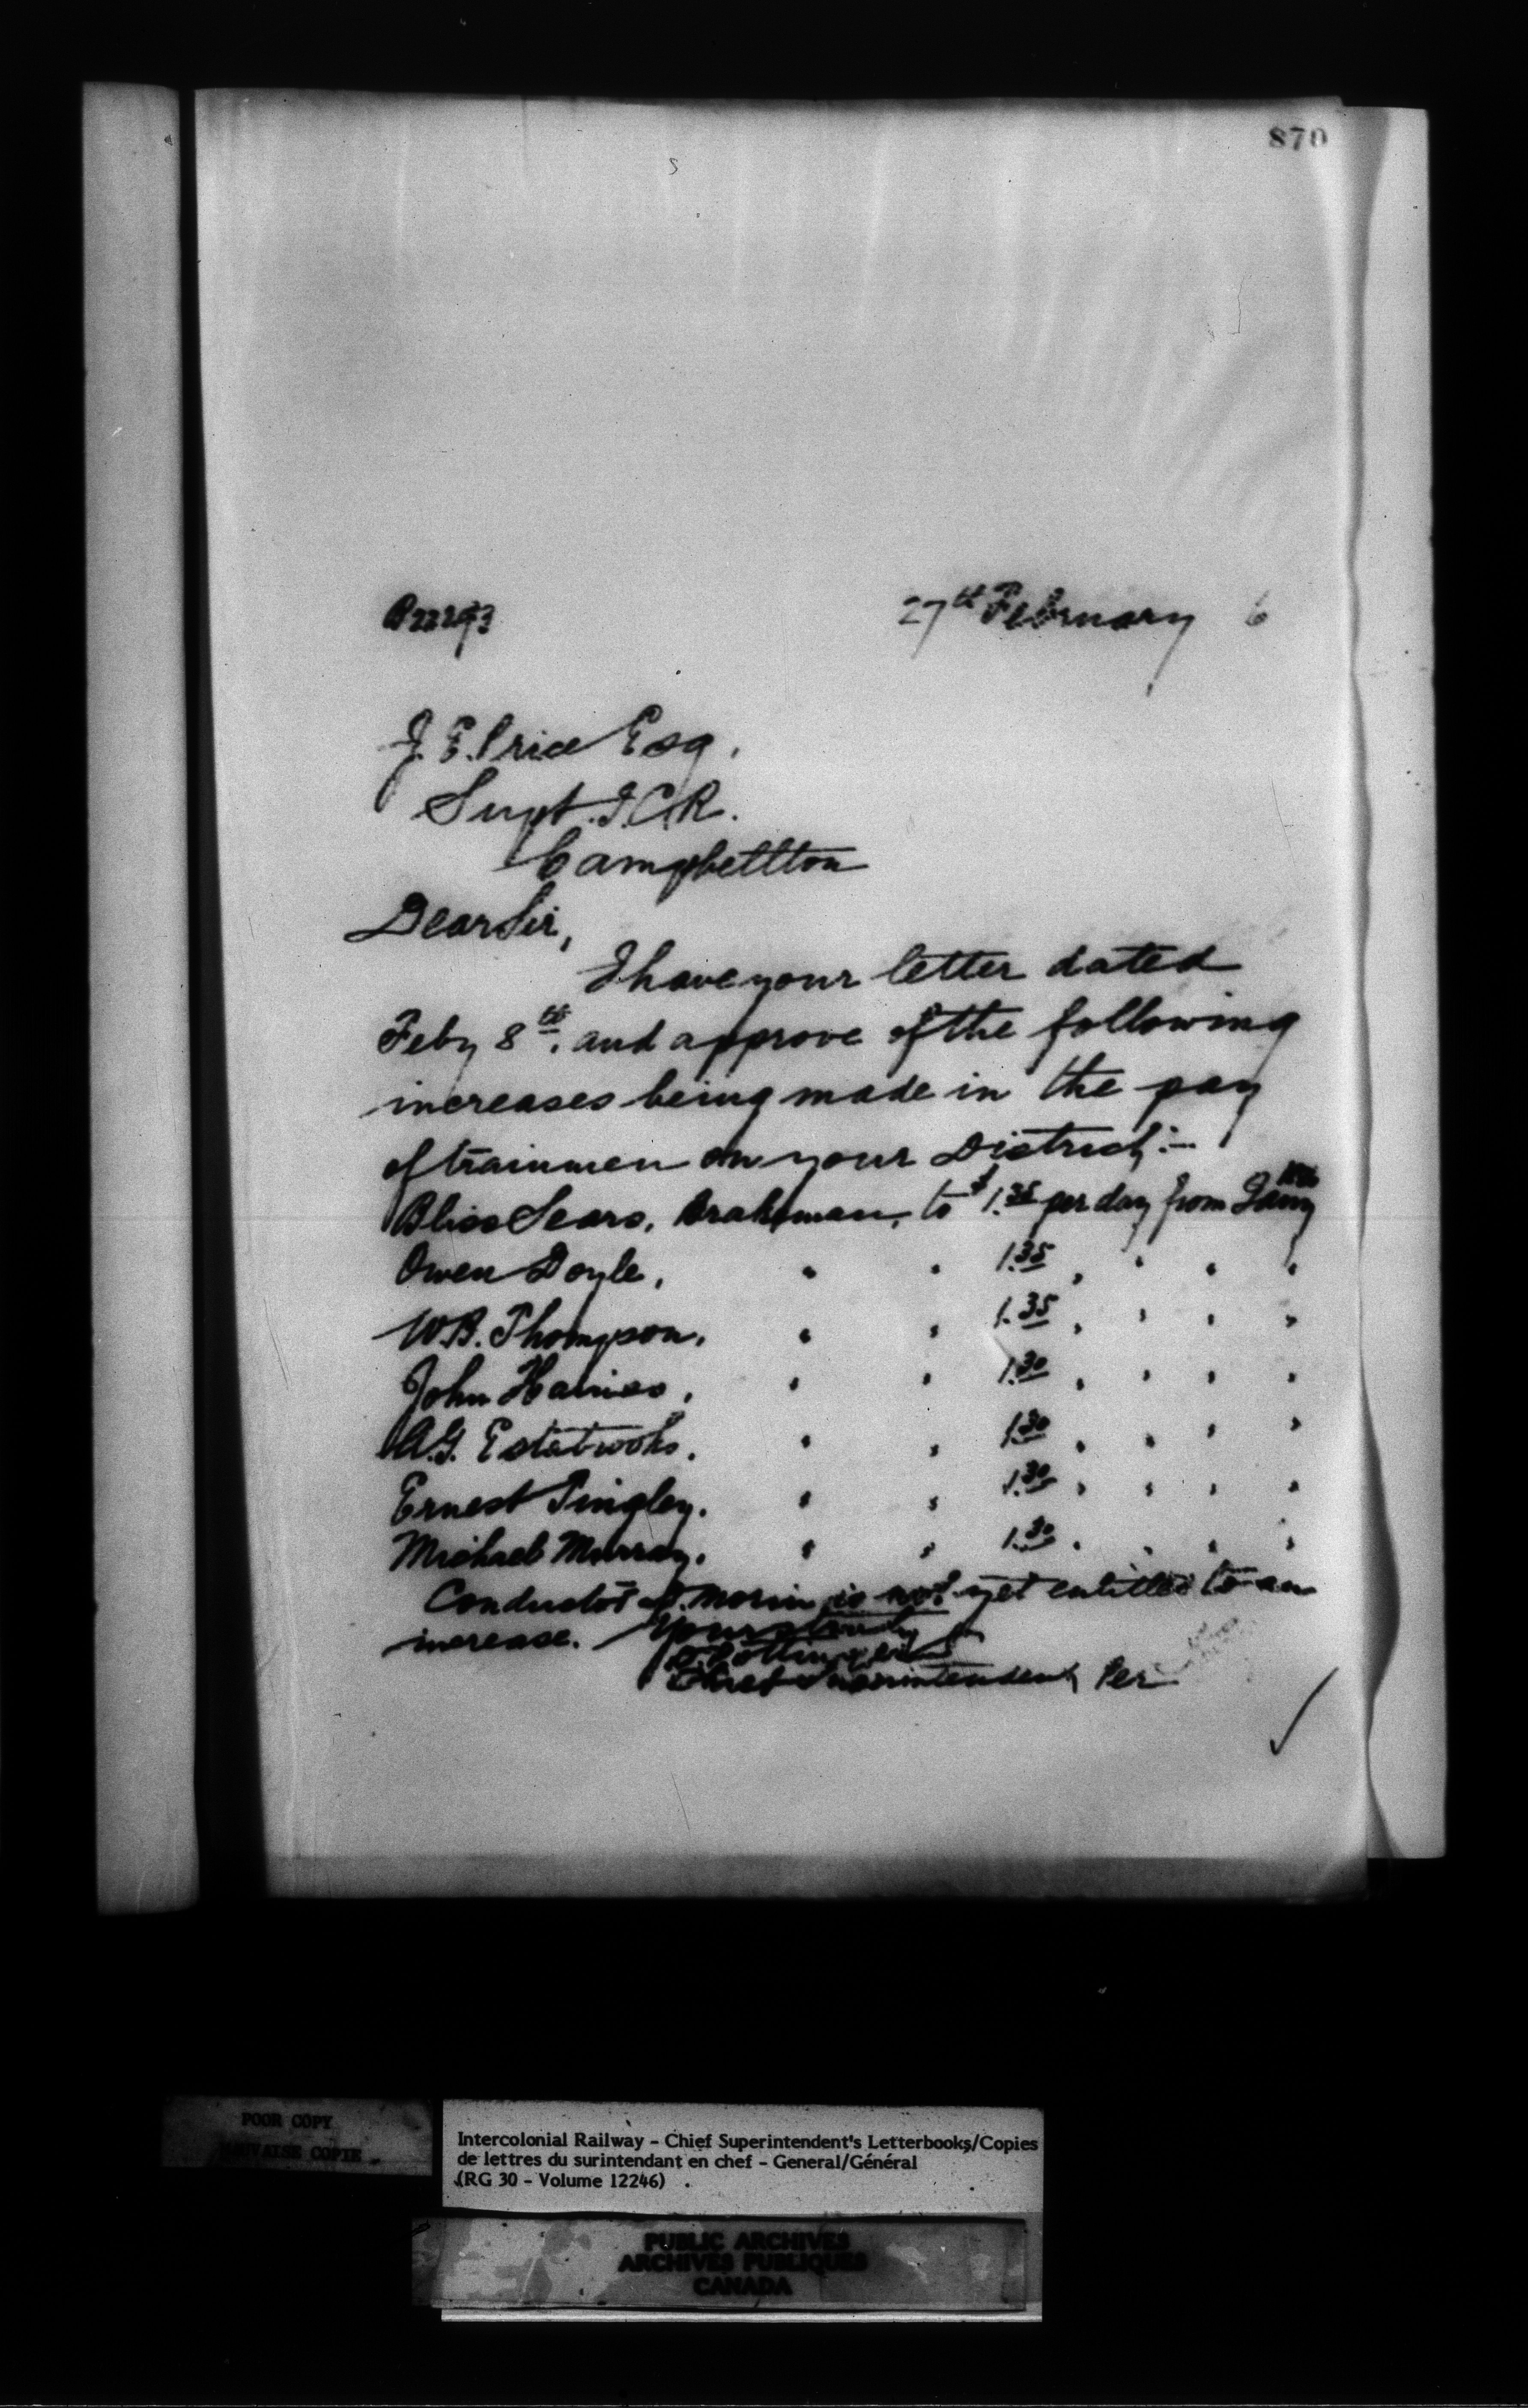 870
27th February 6
J. E. Price Esq.
Supt. I.C.R.
Campbellton
Dear Sir,
I have your letter dated
Feby 8th. and approve of the following
increases being made in the pay
of trainmen on your District:-
Bliss Sears, Brakeman, to $1.35 per day from Jany
Owen Doyle, " " 1.35 " " " "
W.B. Thompson. " " 1.35 " " " "
John Haines, " " 1.30 " " " "
A.G. Estabrooks. " " 1.30 " " " "
Ernest Tingley. " " 1.30 " " " "
Michael Murray. " " 1.30 " " " "
Conductor Morin is not yet entitled to an
increase. Yours truly
D. Pottinger
Chief Superintendent Per
POOR COPY
MAUVAISE COPIE
Intercolonial Railway - Chief Superintendent's Letterbooks/Copies
de lettres du surintendant en chef - General/Général
(RG 30 - Volume 12246)
PUBLIC ARCHIVES
ARCHIVES PUBLIQUES
CANADA